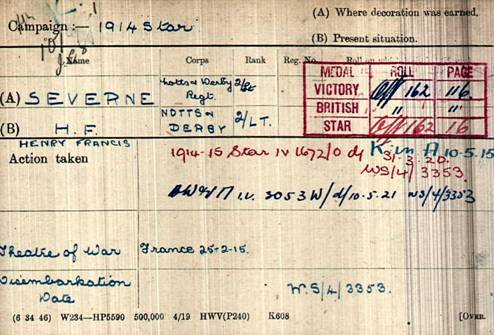 (A) Where decoration was earned.
Campaign :— 1914 Star
(B) Present situation.
Name Corps Rank Reg. No. Roll on
MEDAL ROLL PAGE
VICTORY Off 162 116
BRITISH " "
STAR Off 162 16
(A) SEVERNE Notts & Derby Regt. 2/Lt
(B) H.F. NOTTS & DERBY 2/LT.
HENRY FRANCIS
Action taken 1914-15 Star iv 1672/0 d/ 31.3.20. K in A 10-5-15
WS/4/3353.
BW & V i.v. 3053 W/d/10.5.21 WS/4/3353
Theatre of War France 25-2-15.
Disembarkation Date W.S/4/3353.
(6 34 46) W234—HP5590 500,000 4/19 HWV(P240) K608 [OVER.